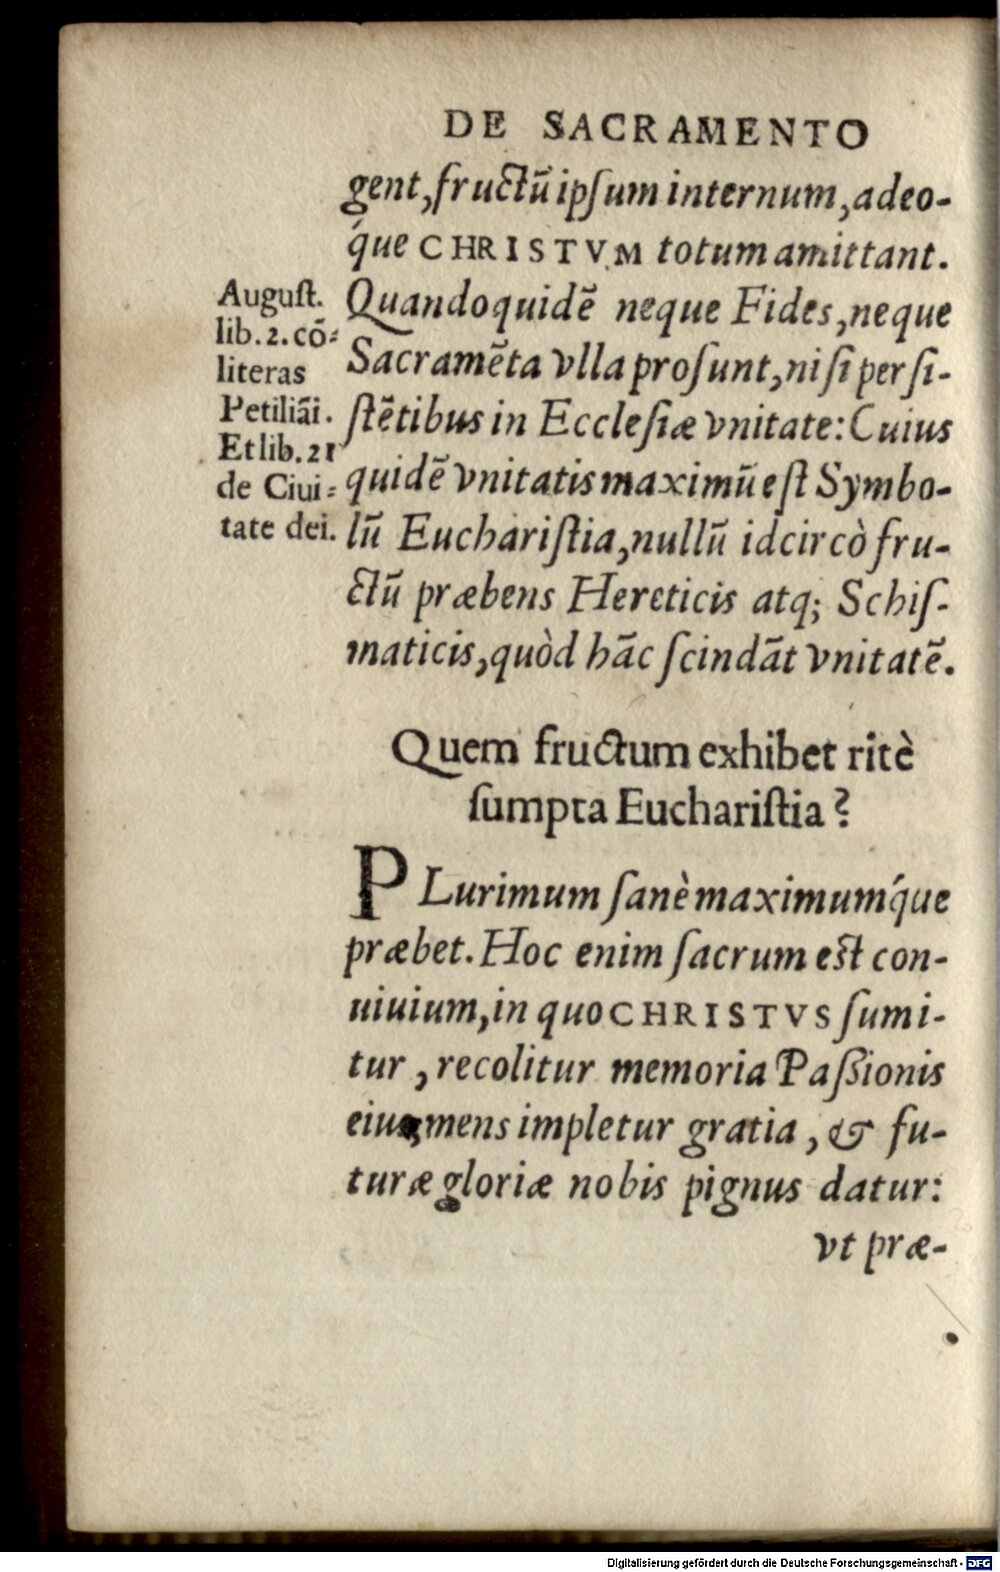 DE SACRAMENTO
gent, fructũ ipſum internum, adeo-
q́ue CHRISTVM totum amittant.
Quandoquidẽ neque Fides, neque
Sacramẽta vlla proſunt, niſi perſi-
ſtẽtibus in Eccleſiæ vnitate: Cuius
quidẽ vnitatis maximũ eſt Symbo-
lũ Euchariſtia, nullũ idcircò fru-
ctũ præbens Hereticis atq; Schiſ-
maticis, quòd hãc ſcindãt vnitatẽ.
Auguſt.
lib. 2. cõ⸗
literas
Petiliãi.
Et lib. 21
de Ciui⸗
tate dei.
Quem fructum exhibet ritè
ſumpta Euchariſtia?
PLurimum ſanè maximumq́ue
præbet. Hoc enim ſacrum eſt con-
uiuium, in quo CHRISTVS ſumi-
tur, recolitur memoria Paſsionis
eius, mens impletur gratia, & fu-
turæ gloriæ nobis pignus datur:
vt præ-
Digitalisierung gefördert durch die Deutsche Forschungsgemeinschaft - DFG